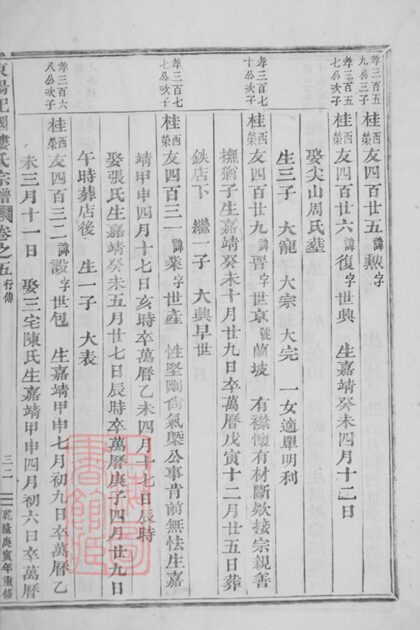 孝三百五九公三子
桂西榮友四百廿五諱勲字
孝三百五十七公次子
桂西榮友四百廿六諱復字世興 生嘉靖癸未四月十二日
娶尖山周氏塟
生三子 大龍 大宗 大完 一女適單明利
孝三百七十公次子
桂西榮友四百廿九諱晋字世京號蘭坡 有襟懐有材斷欸接宗親善
撫猶子生嘉靖癸未十月廿九日卒萬曆戊寅十二月廿五日葬
鉄店下 繼一子 大興早世
孝三百七十七公次子
桂西榮友四百三一諱業字世產 性堅剛尙氣槩公事肯前無怯生嘉
靖甲申四月十七日亥時卒萬曆乙未四月十七日辰時
娶張氏生嘉靖癸未五月廿七日辰時卒萬曆庚子四月廿九日
午時葬店後 生一子 大表
孝三百六八公次子
桂西榮友四百三二諱設字世包 生嘉靖甲申七月初九日卒萬曆乙
未三月十一日 娶三宅陳氏生嘉靖甲申四月初六日卒萬曆
東陽 國 氏宗譜 卷之五 行傳
三二 乾隆庚寅年重修